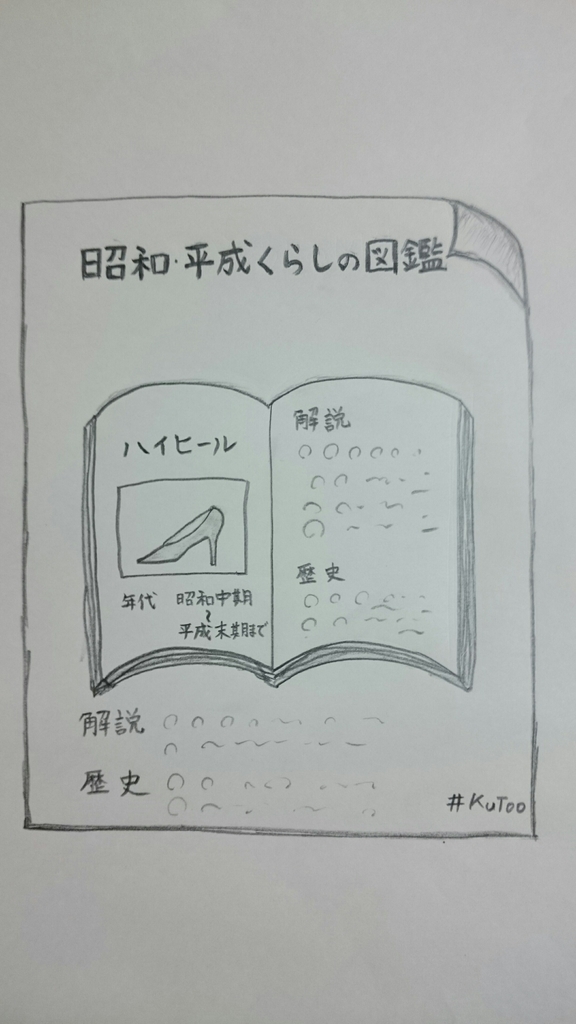 昭和・平成くらしの図鑑
ハイヒール
年代 昭和中期
〜
平成末期まで
解説
歴史
解説
歴史
#KuToo